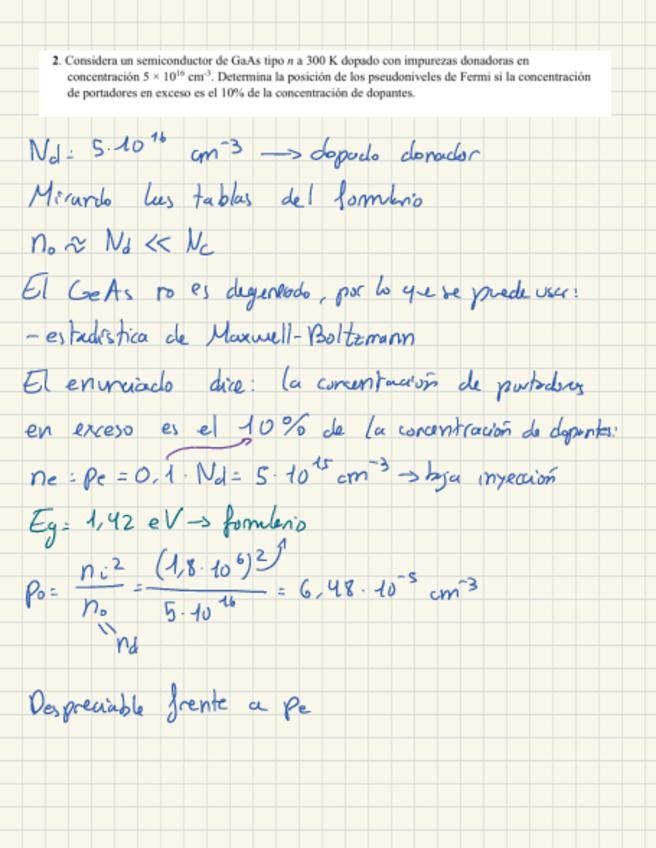 2. Considera un semiconductor de GaAs tipo n a 300 K dopado con impurezas donadoras en
concentración 5 × 10¹⁶ cm⁻³. Determina la posición de los pseudoniveles de Fermi si la concentración
de portadores en exceso es el 10% de la concentración de dopantes.
Nd = 5·10¹⁶ cm⁻³ → dopado donador
Mirando las tablas del formulario
n₀ ≈ Nd << Nc
El GaAs no es degenerado, por lo que se puede usar:
- estadística de Maxwell-Boltzmann
El enunciado dice: la concentración de portadores
en exceso es el 10% de la concentración de dopantes:
ne = pe = 0,1 · Nd = 5·10¹⁵ cm⁻³ → baja inyección
Eg = 1,42 eV → formulario
p₀ = ni²/n₀ = (1,8·10⁶)²/5·10¹⁶ = 6,48·10⁻⁵ cm⁻³
= nd
Despreciable frente a pe